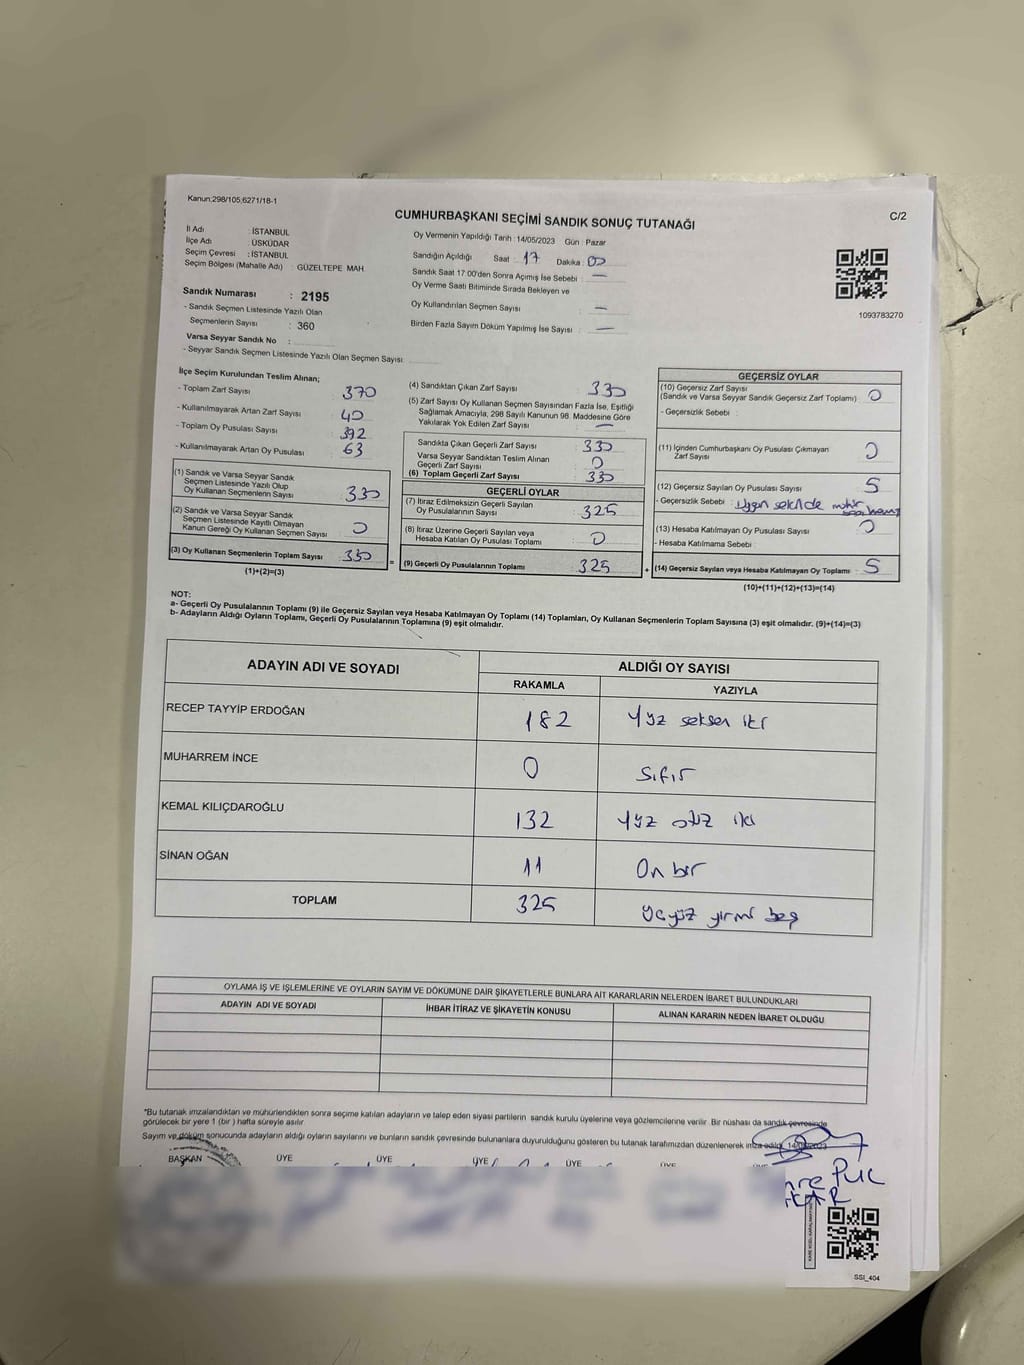 Kanun;298/105,6271/18-1
CUMHURBAŞKANI SEÇİMİ SANDIK SONUÇ TUTANAĞI
C/2
İl Adı : İSTANBUL
İlçe Adı : ÜSKÜDAR
Seçim Çevresi : İSTANBUL
Seçim Bölgesi (Mahalle Adı) : GÜZELTEPE MAH.
Sandık Numarası : 2195
- Sandık Seçmen Listesinde Yazılı Olan
Seçmenlerin Sayısı : 360
Varsa Seyyar Sandık No :
- Seyyar Sandık Seçmen Listesinde Yazılı Olan Seçmen Sayısı:
Oy Vermenin Yapıldığı Tarih : 14/05/2023 Gün : Pazar
Sandığın Açıldığı Saat : 17 Dakika : 00
Sandık Saat 17:00'den Sonra Açımış İse Sebebi : —
Oy Verme Saati Bitiminde Sırada Bekleyen ve
Oy Kullandırılan Seçmen Sayısı : —
Birden Fazla Sayım Döküm Yapılmış İse Sayısı : —
1093783270
İlçe Seçim Kurulundan Teslim Alınan;
- Toplam Zarf Sayısı : 370
- Kullanılmayarak Artan Zarf Sayısı : 40
- Toplam Oy Pusulası Sayısı : 392
- Kullanılmayarak Artan Oy Pusulası : 63
(1) Sandık ve Varsa Seyyar Sandık
Seçmen Listesinde Yazılı Olup
Oy Kullanan Seçmenlerin Sayısı : 330
(2) Sandık ve Varsa Seyyar Sandık
Seçmen Listesinde Kayıtlı Olmayan
Kanun Gereği Oy Kullanan Seçmen Sayısı : 0
(3) Oy Kullanan Seçmenlerin Toplam Sayısı : 330
(1)+(2)=(3)
(4) Sandıktan Çıkan Zarf Sayısı : 330
(5) Zarf Sayısı Oy Kullanan Seçmen Sayısından Fazla İse, Eşitliği
Sağlamak Amacıyla, 298 Sayılı Kanunun 98. Maddesine Göre
Yakılarak Yok Edilen Zarf Sayısı : —
Sandıkta Çıkan Geçerli Zarf Sayısı : 330
Varsa Seyyar Sandıktan Teslim Alınan
Geçerli Zarf Sayısı : 0
(6) Toplam Geçerli Zarf Sayısı : 330
GEÇERLİ OYLAR
(7) İtiraz Edilmeksizin Geçerli Sayılan
Oy Pusulalarının Sayısı : 325
(8) İtiraz Üzerine Geçerli Sayılan veya
Hesaba Katılan Oy Pusulası Toplamı : 0
= (9) Geçerli Oy Pusulalarının Toplamı : 325
GEÇERSİZ OYLAR
(10) Geçersiz Zarf Sayısı
(Sandık ve Varsa Seyyar Sandık Geçersiz Zarf Toplamı) : 0
- Geçersizlik Sebebi :
(11) İçinden Cumhurbaşkanı Oy Pusulası Çıkmayan
Zarf Sayısı : 0
(12) Geçersiz Sayılan Oy Pusulası Sayısı : 5
- Geçersizlik Sebebi : Uygun şekilde mühür
(13) Hesaba Katılmayan Oy Pusulası Sayısı : 0
- Hesaba Katılmama Sebebi :
+ (14) Geçersiz Sayılan veya Hesaba Katılmayan Oy Toplamı : 5
(10)+(11)+(12)+(13)=(14)
NOT:
a- Geçerli Oy Pusulalarının Toplamı (9) ile Geçersiz Sayılan veya Hesaba Katılmayan Oy Toplamı (14) Toplamları, Oy Kullanan Seçmenlerin Toplam Sayısına (3) eşit olmalıdır. (9)+(14)=(3)
b- Adayların Aldığı Oyların Toplamı, Geçerli Oy Pusulalarının Toplamına (9) eşit olmalıdır.
ADAYIN ADI VE SOYADI ALDIĞI OY SAYISI
RAKAMLA YAZIYLA
RECEP TAYYİP ERDOĞAN 182 Yüz seksen iki
MUHARREM İNCE 0 Sıfır
KEMAL KILIÇDAROĞLU 132 Yüz otuz iki
SİNAN OĞAN 11 On bir
TOPLAM 325 Üçyüz yirmi beş
OYLAMA İŞ VE İŞLEMLERİNE VE OYLARIN SAYIM VE DÖKÜMÜNE DAİR ŞİKAYETLERLE BUNLARA AİT KARARLARIN NELERDEN İBARET BULUNDUKLARI
ADAYIN ADI VE SOYADI İHBAR İTİRAZ VE ŞİKAYETİN KONUSU ALINAN KARARIN NEDEN İBARET OLDUĞU
*Bu tutanak imzalandıktan ve mühürlendikten sonra seçime katılan adayların ve talep eden siyasi partilerin sandık kurulu üyelerine veya gözlemcilerine verilir. Bir nüshası da sandık çevresinde
görülecek bir yere 1 (bir ) hafta süreyle asılır.
Sayım ve döküm sonucunda adayların aldığı oyların sayılarını ve bunların sandık çevresinde bulunanlara duyurulduğunu gösteren bu tutanak tarafımızdan düzenlenerek imza edildi. 14/05/2023
BAŞKAN ÜYE ÜYE ÜYE ÜYE ÜYE
SSI_404